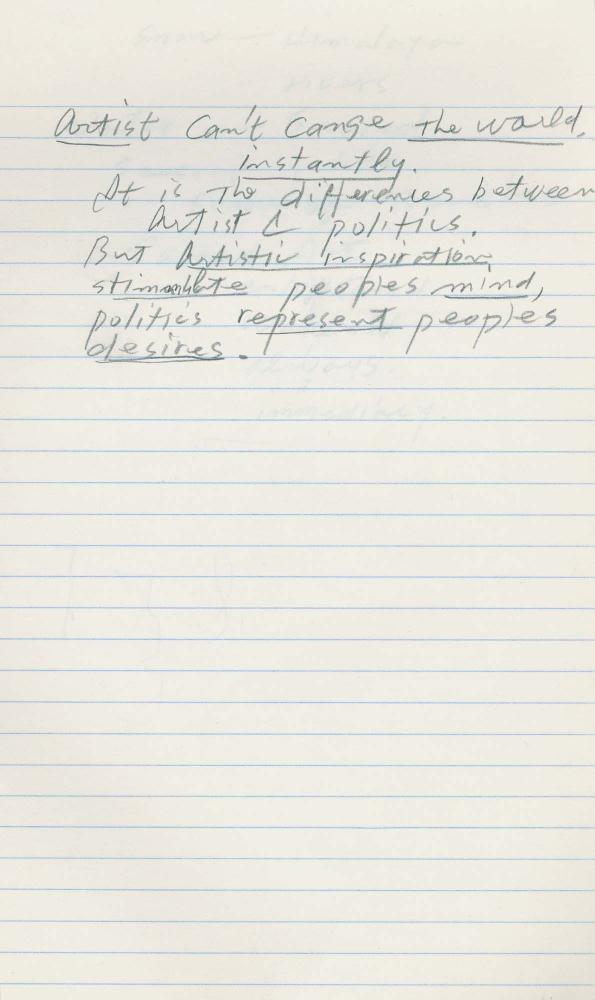 Artist Can't Cange the world,
instantly.
It is The differences between
Artist & politics.
But Artistic inspiration,
stimulate peoples mind,
politics represent peoples
desires.